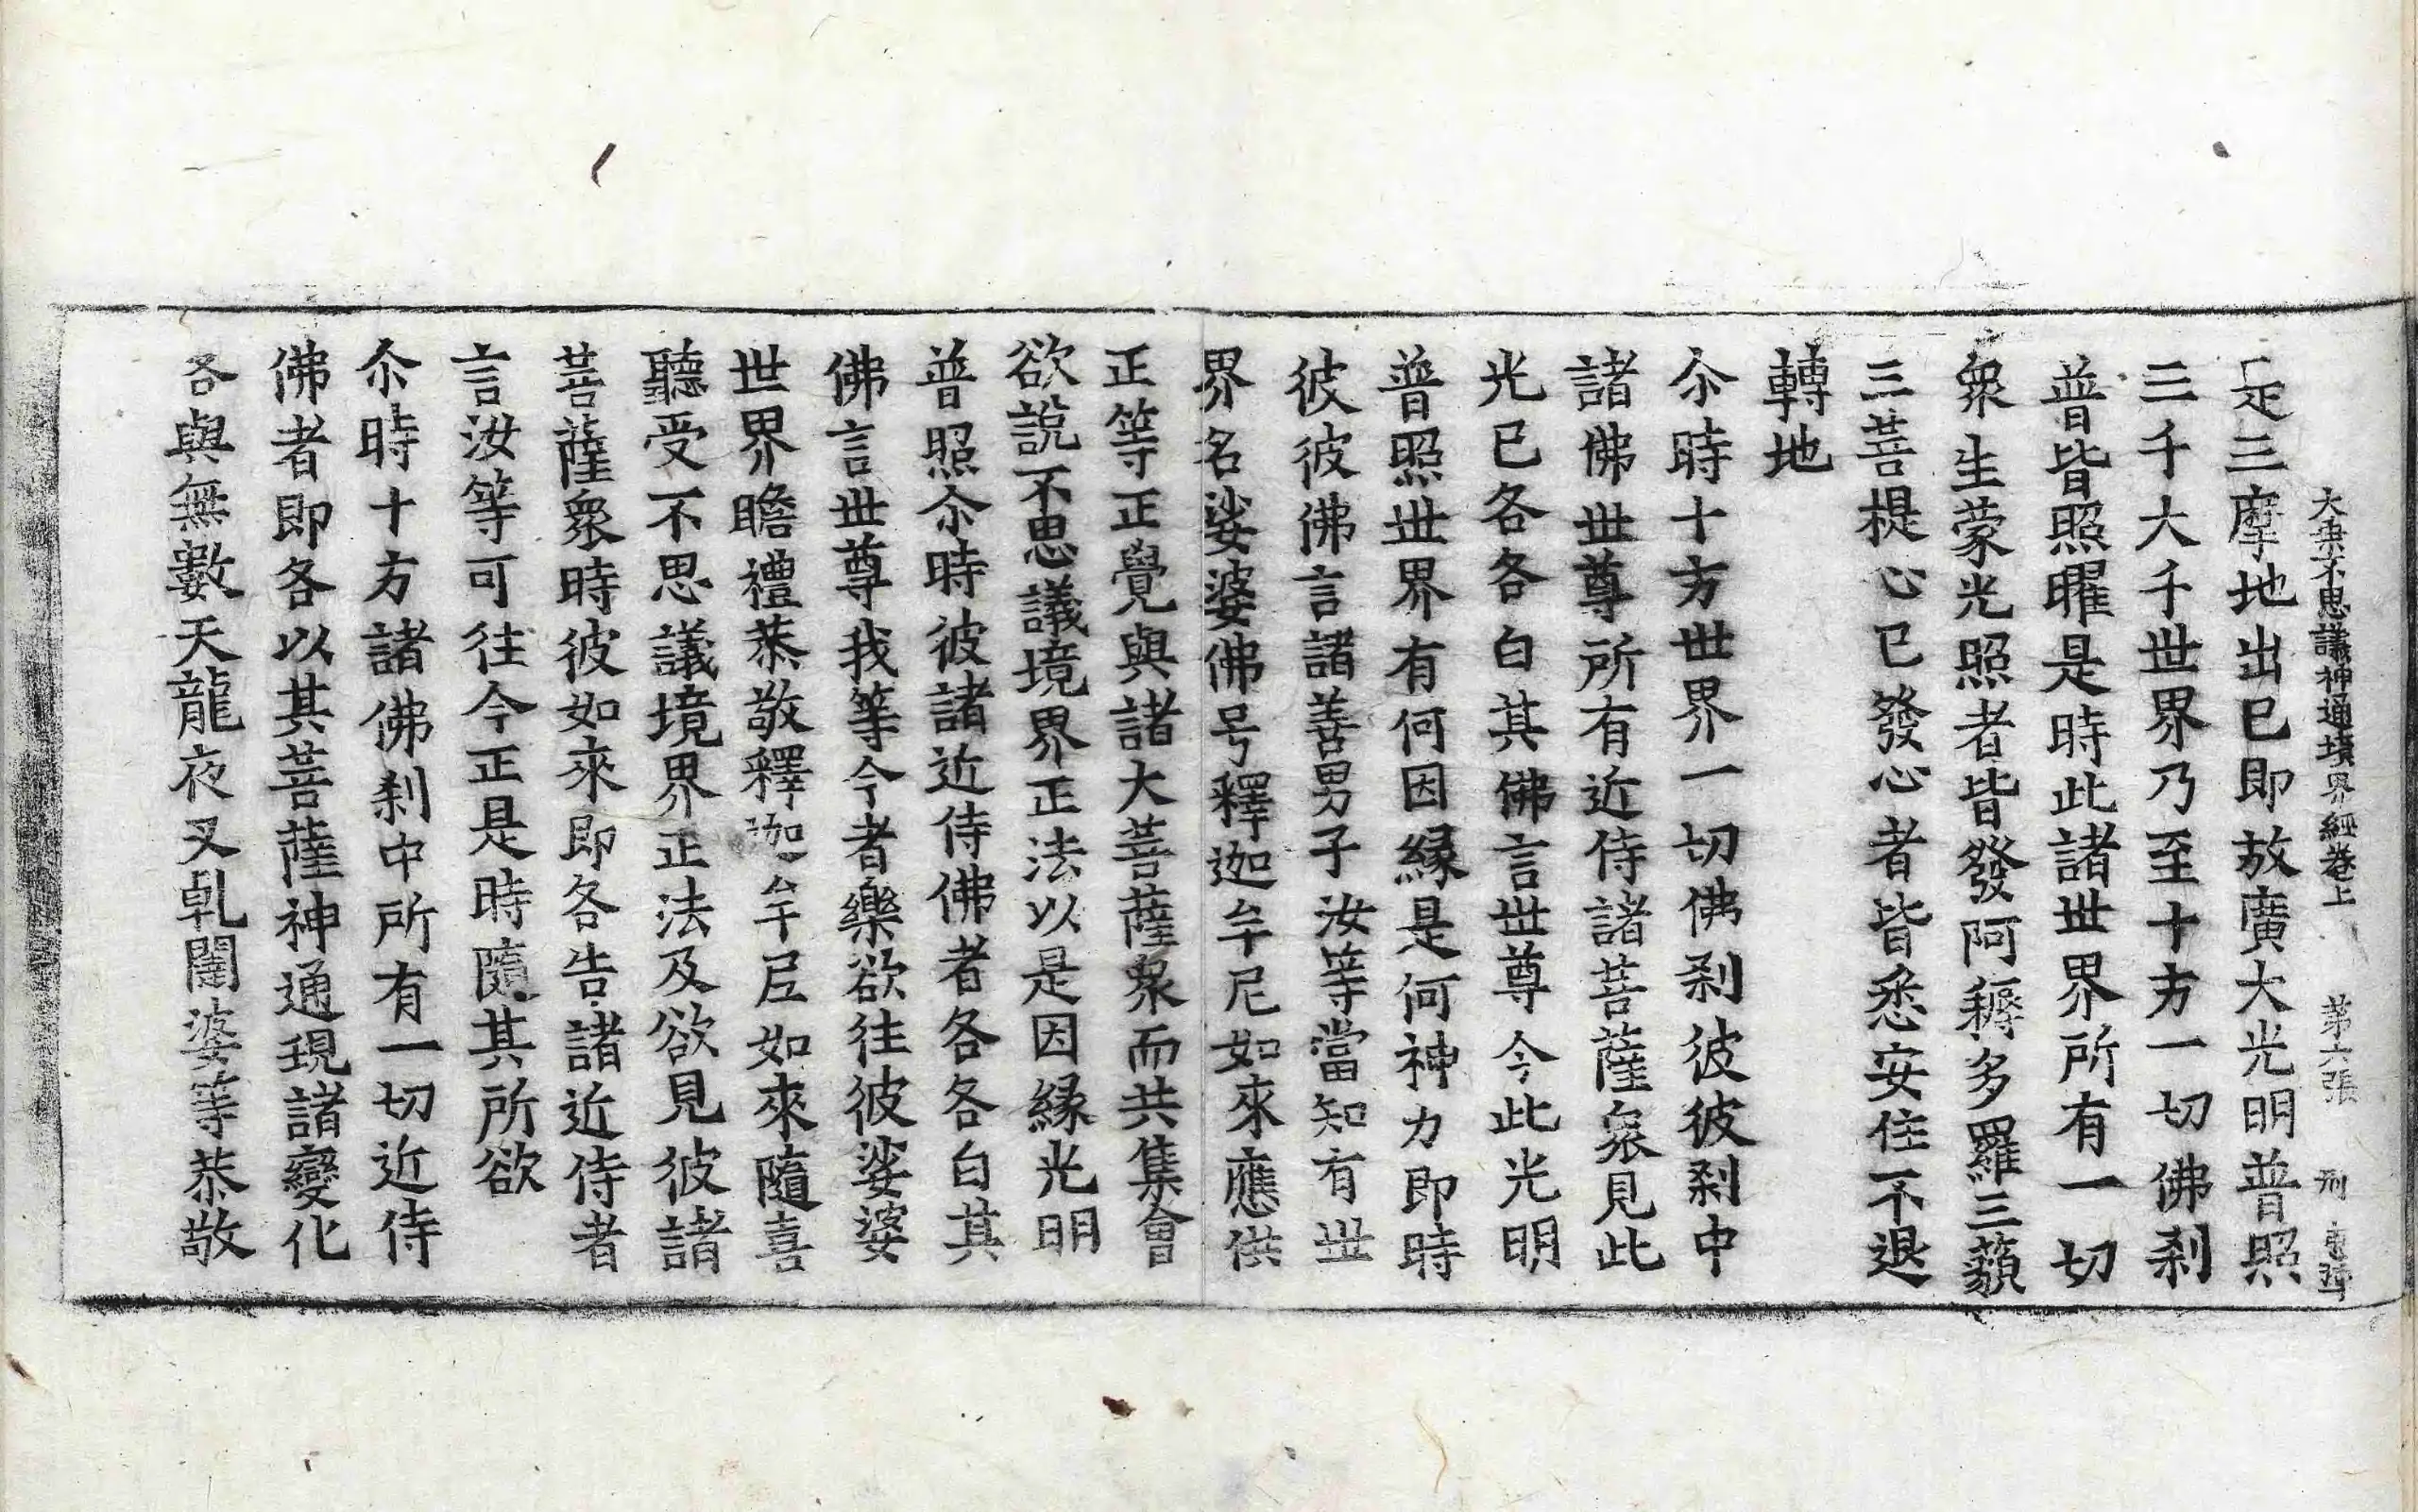 大乗不思議神通境界經卷上 第六張 刑
是三摩地出已即放廣大光明普照
三千大千世界乃至十方一切佛刹
普皆照曜是時此諸世界所有一切
衆生蒙光照者皆發阿耨多羅三藐
三菩提心已發心者皆悉安住不退
轉地
尒時十方世界一切佛刹彼彼刹中
諸佛世尊所有近侍諸菩薩衆見此
光已各各白其佛言世尊今此光明
普照世界有何因緣是何神力即時
彼彼佛言諸善男子汝等當知有世
界名娑婆佛号釋迦牟尼如來應供
正等正覺與諸大菩薩衆而共集會
欲說不思議境界正法以是因緣光明
普照尒時彼諸近侍佛者各各白其
佛言世尊我等今者樂欲往彼娑婆
世界瞻禮恭敬釋迦牟尼如來隨喜
聽受不思議境界正法及欲見彼諸
菩薩衆時彼如來即各告諸近侍者
言汝等可往今正是時隨其所欲
尒時十方諸佛刹中所有一切近侍
佛者即各以其菩薩神通現諸變化
各與無數天龍夜叉乹闥婆等恭敬